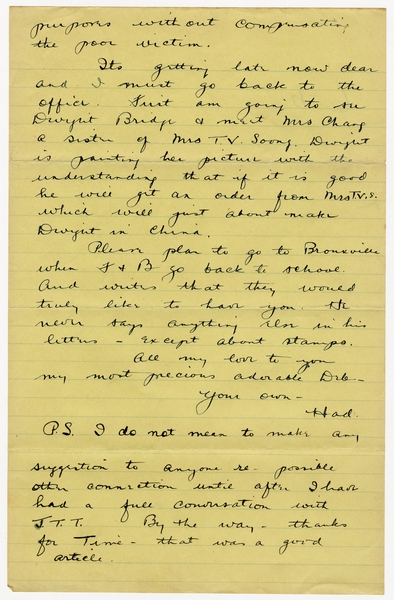 purposes without compensating
the poor victim.
Its getting late now dear
and I must go back to the
office. First am going to see
Dwight Bridge & meet Mrs Chang
a sister of Mrs T.V. Soong. Dwight
is painting her picture with the
understanding that if it is good
he will get an order from Mrs T.V.S.
which will just about make
Dwight in China.
Please plan to go to Bronxville
when J & B go back to school.
And writes that they would
truly like to have you. He
never says anything else in his
letters - except about stamps.
All my love to you
my most precious adorable Deb-
Your own -
Had.
P.S. I do not mean to make any
suggestion to anyone re- possible
other connection until after I have
had a full conversation with
J.T.T. By the way - thanks
for Time - that was a good
article.